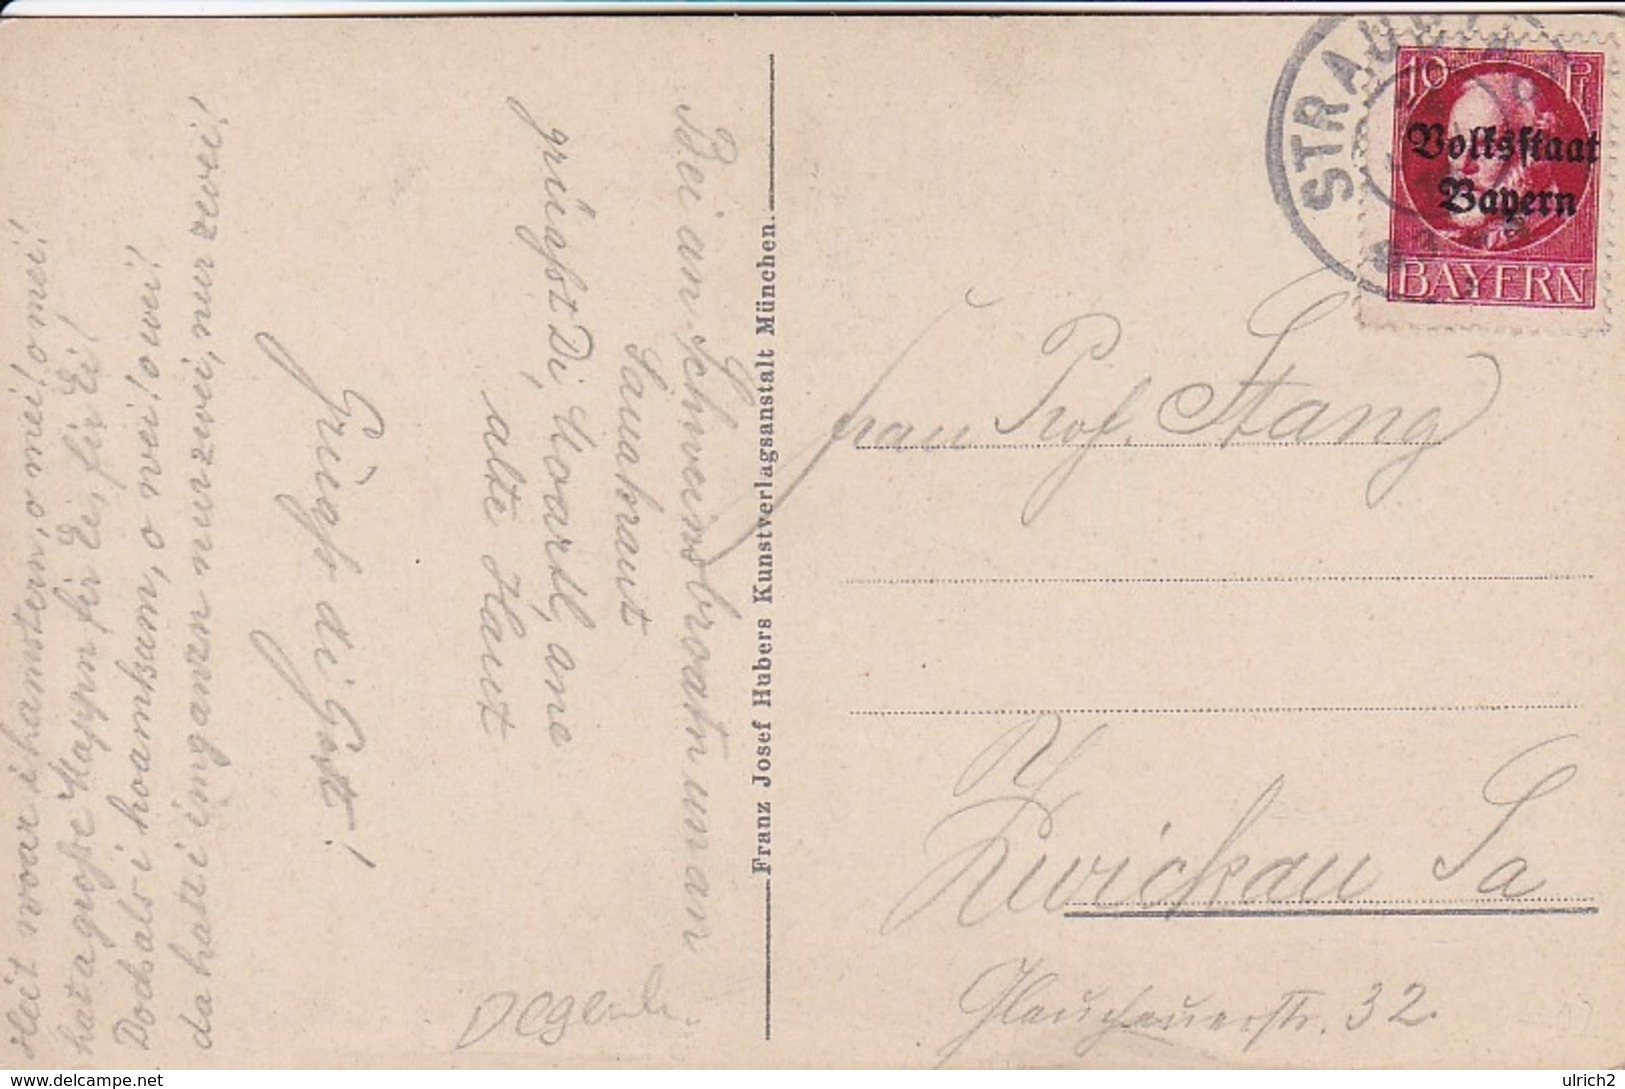 Heit woar i hamstern, o mei! o mei!
hat a große Mappn für Ee, für Ei!
Doch als i hoamkum, o wei! o wei!
da hatt i imganzn nurzwei, nur zwei!
Grüaß di Gott!
Bei an Schweinsbroatn um an
Sauakraut
grüaßt Di, Woartl, ane
alte Haut
Franz Josef Hubers Kunstverlagsanstalt München.
STRAUBING
10 Pf
Volksstaat
Bayern
BAYERN
Frau Prof. Stang
Zwickau Sa
Glauchauerstr. 32.
delcampe.net
ulrich2